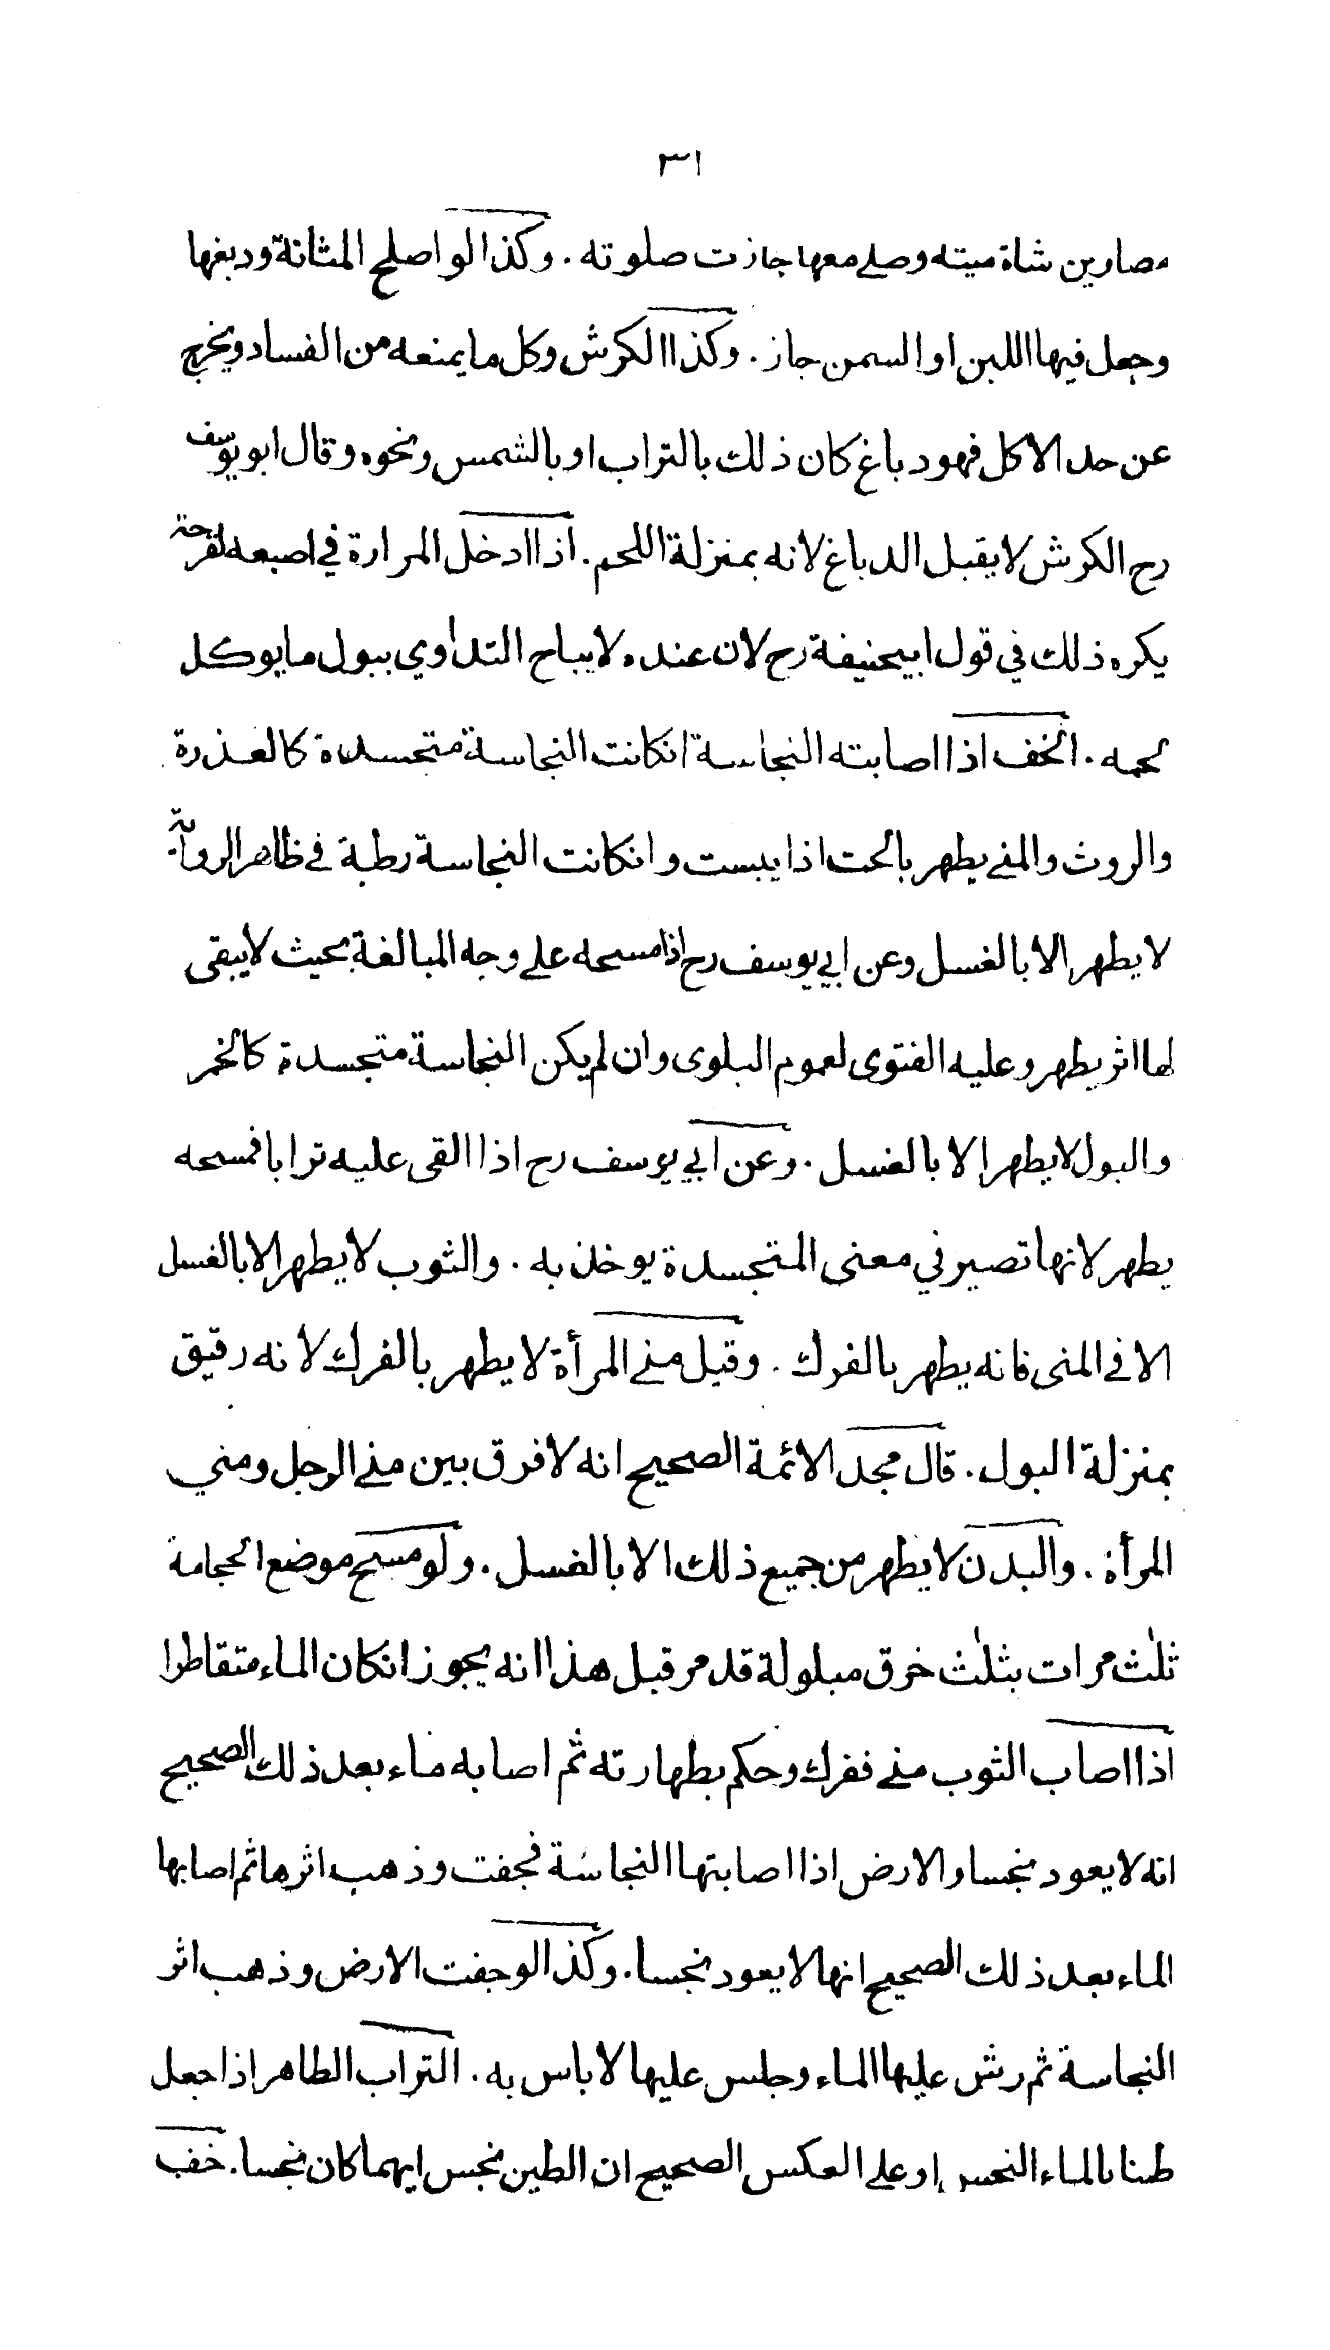 ٣١
مصارين شاة ميته وصلے معها جازت صلوته . وكذا لو اصلح المثانة ودبغها
وجعل فيها اللبن او السمن جاز . وكذا الكرش وكل ما يمنعه من الفساد ويخرج
عن حد الاكل فهو دباغ كان ذلك بالتراب او بالشمس ونحوه وقال ابو يوسف
رح الكرش لا يقبل الدباغ لانه بمنزلة اللحم . اذا ادخل المرارة في اصبعه لقرحة
يكره ذلك في قول ابيحنيفة رح لان عنده لا يباح التداوي ببول ما يوكل
لحمه . الخف اذا اصابته النجاسة انكانت النجاسة متجسدة كالعذرة
والروث والمني يطهر بالحت اذا يبست وانكانت النجاسة رطبة في ظاهر الرواية
لا يطهر الا بالغسل وعن ابي يوسف رح اذا مسحه علے وجه المبالغة بحيث لا يبقى
لها اثر يطهر وعليه الفتوى لعموم البلوى وان لم يكن النجاسة متجسدة كالخمر
والبول لا يطهر الا بالغسل . وعن ابي يوسف رح اذا القى عليه ترابا فمسحه
يطهر لانها تصير في معنى المتجسدة يوخذ به . والثوب لا يطهر الا بالغسل
الا في المنى فانه يطهر بالفرك . وقيل منے المرأة لا يطهر بالفرك لانه رقيق
بمنزلة البول . قال مجد الائمة الصحيح انه لا فرق بين منے الرجل ومني
المرأة . والبدن لا يطهر من جميع ذلك الا بالغسل . ولو مسح موضع الحجامة
ثلٰث مرات بثلٰث خرق مبلولة قد مر قبل هذا انه يجوز انكان الماء متقاطرا
اذا اصاب الثوب منے ففرك وحكم بطهارته ثم اصابه ماء بعد ذلك الصحيح
انه لا يعود نجسا والارض اذا اصابتها النجاسة فجفت وذهب اثرها ثم اصابها
الماء بعد ذلك الصحيح انها لا يعود نجسا . وكذا لو جفت الارض وذهب اثر
النجاسة ثم رش عليها الماء وجلس عليها لا باس به . التراب الطاهر اذا جعل
طينا بالماء النجس او علے العكس الصحيح ان الطين نجس ايهما كان نجسا . خف